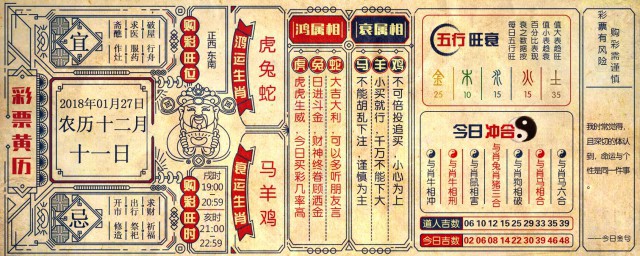 彩票黄历
宜
破屋 行舟
求医 服药
斋醮 作灶
2018年01月27日
农历十二月
十一日
忌
求财 祈福
出行 祭祀
开市 修造
购彩旺位
正西 东南
购彩旺时
戌时
19:00
-
20:59
亥时
21:00
-
22:59
鸿运生肖
虎兔蛇
衰运生肖
马羊鸡
鸿属相
虎 虎虎生威,今日买彩几率高
兔 日进斗金 财神终眷顾洒金
蛇 大吉大利,可以多听朋友言
衰属相
马 不能胡乱下注 谨慎为主
羊 小买就行 千万不能下大
鸡 不可倍投追买 小心为上
五行旺衰
每日五行
衰之数据按
百分制表现
值小表趋衰
值大表趋旺
金 木 水 火 土
25 10 15 15 35
今日冲合
与肖牛相冲
与肖牛相刑
与肖鼠相害
与肖狗相破
与肖兔肖猪三合
与肖马相合
与肖马六合
道人吉数 06 10 12 15 25 29 33 35 39
今日吉数 02 06 08 14 22 30 39 46 48
购彩需谨慎
彩票有风险
我时常觉得,
且深切的体认
到,命运与个
性是同一件事
——今日金句